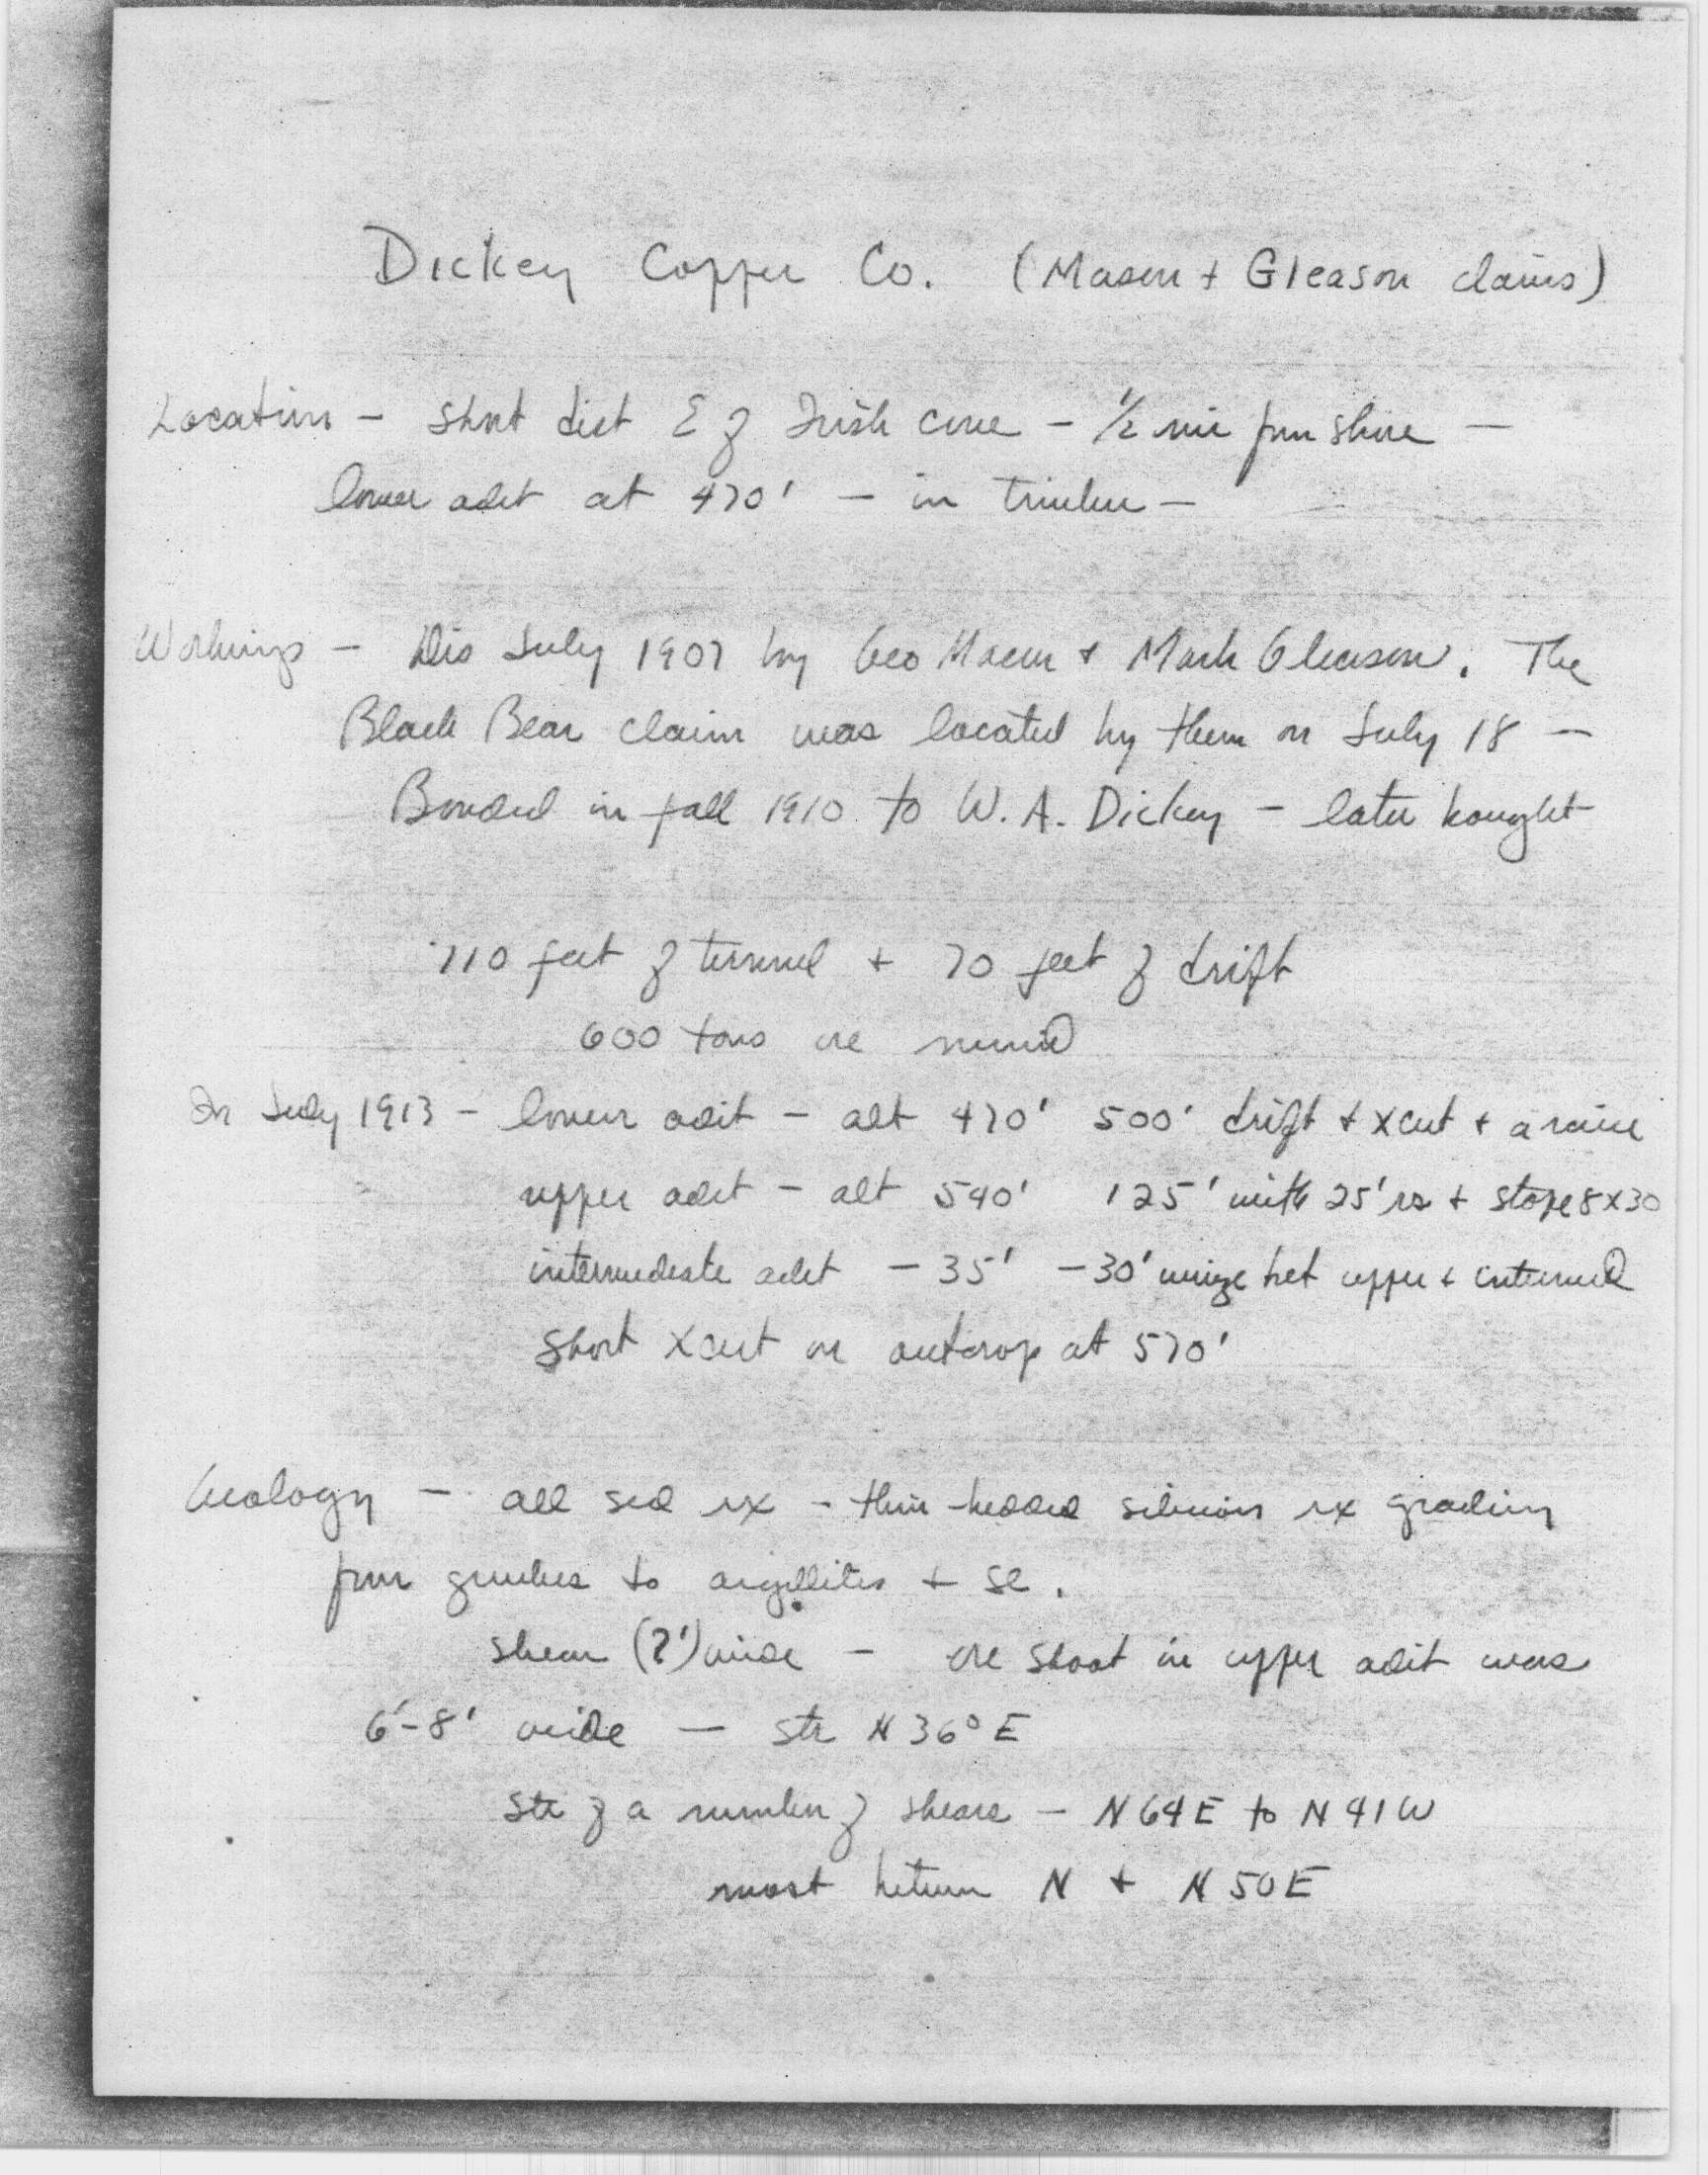 Dickey Copper Co. (Mason + Gleason claims)
Location - short dist E of Irish Cove - 1/2 mi from shore -
lower adit at 470' - in timber -
Workings - Dis July 1907 by Geo Mason + Mark Gleason. The
Black Bear claim was located by them on July 18 -
Bonded in fall 1910 to W. A. Dickey - later bought
110 feet of tunnel + 70 feet of drift
600 tons ore mined
In July 1913 - lower adit - alt 470' 500' drift + xcut + a raise
upper adit - alt 540' 125' with 25' rs + stope 8x30
intermediate adit - 35' - 30' winze bet upper + intermed
short xcut on outcrop at 570'
Geology - all sed rx - thin-bedded silicious rx grading
from to argillites + sl.
shear (?') wide - ore shoot in upper adit was
6'-8' wide - str N 36° E
str of a number of shears - N 64 E to N 41 W
most between N + N 50 E